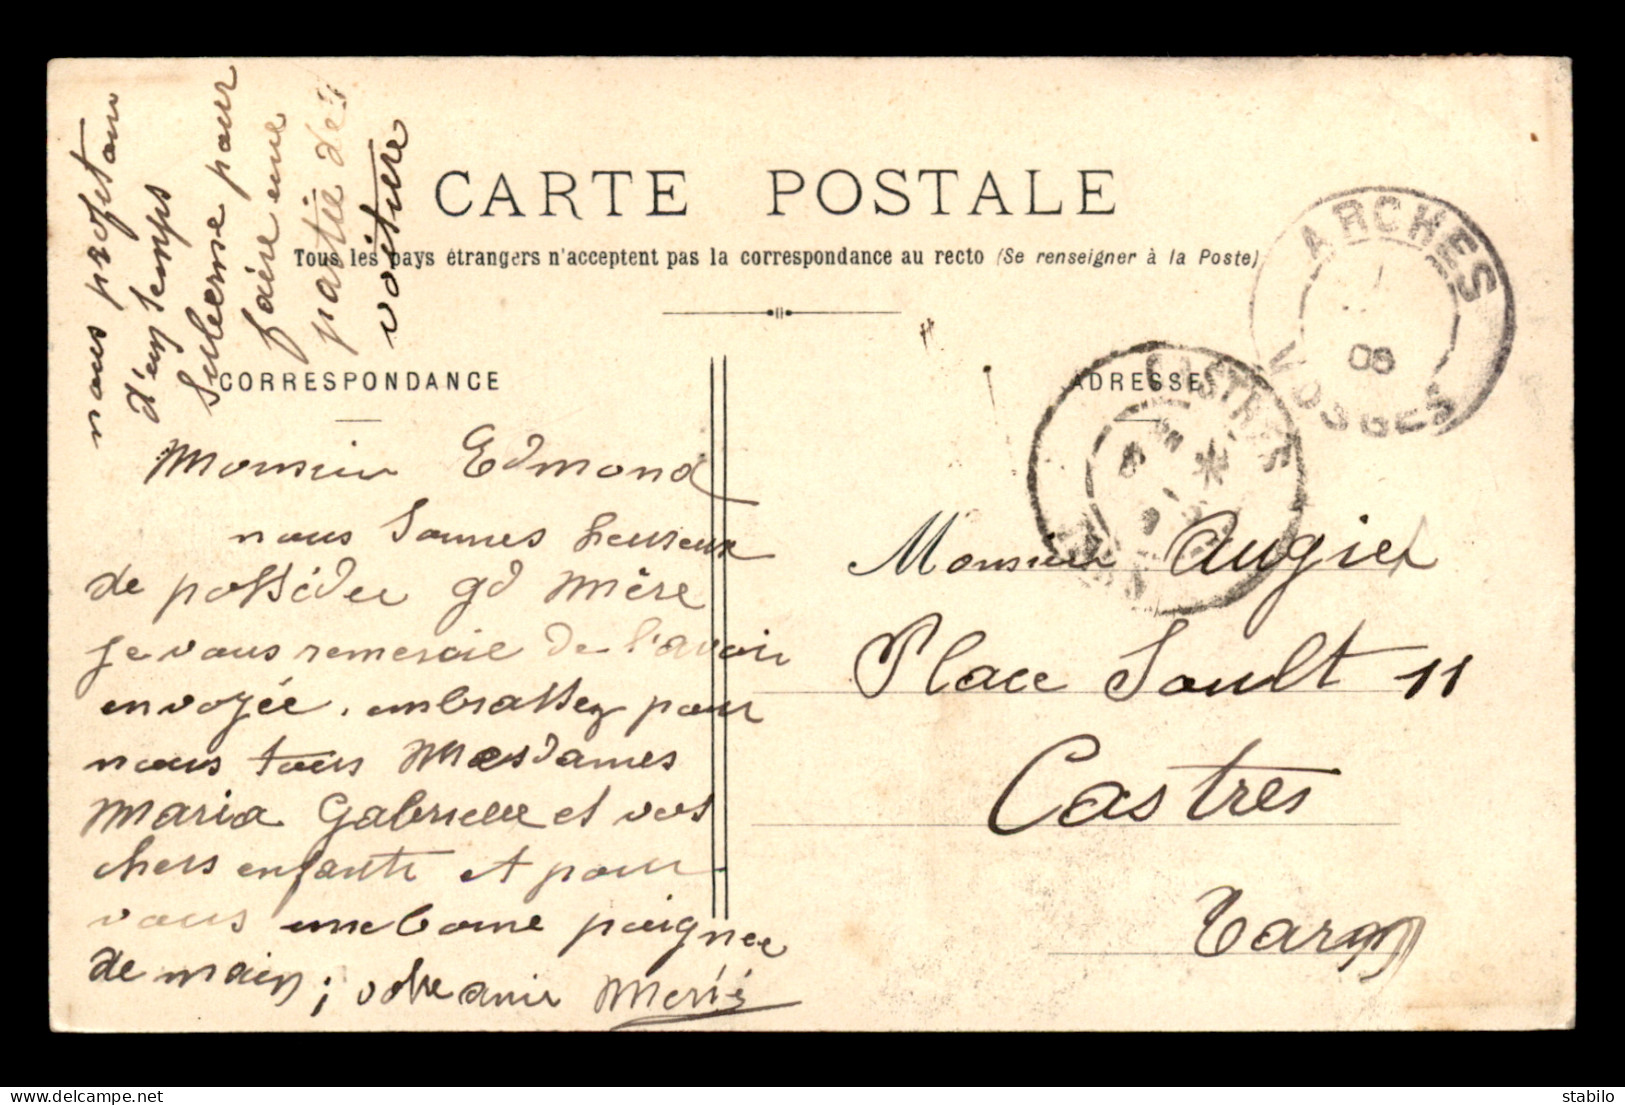 nous profitons
d'un temps
superbe pour
faire une
partie de
voiture
CARTE POSTALE
Tous les pays étrangers n'acceptent pas la correspondance au recto (Se renseigner à la Poste)
CORRESPONDANCE
ADRESSE
ARCHES
08
VOSGES
CASTRES
TARN
Monsieur Edmond
nous sommes heureux
de posséder gd Mère
je vous remercie de l'avoir
envoyée. embrassez pour
nous tous Mesdames
Maria Gabrielle et vos
chers enfants et pour
vous une bonne poignee
de main; votre ami
Monsieur Augier
Place Soult 11
Castres
Tarn
stabilo